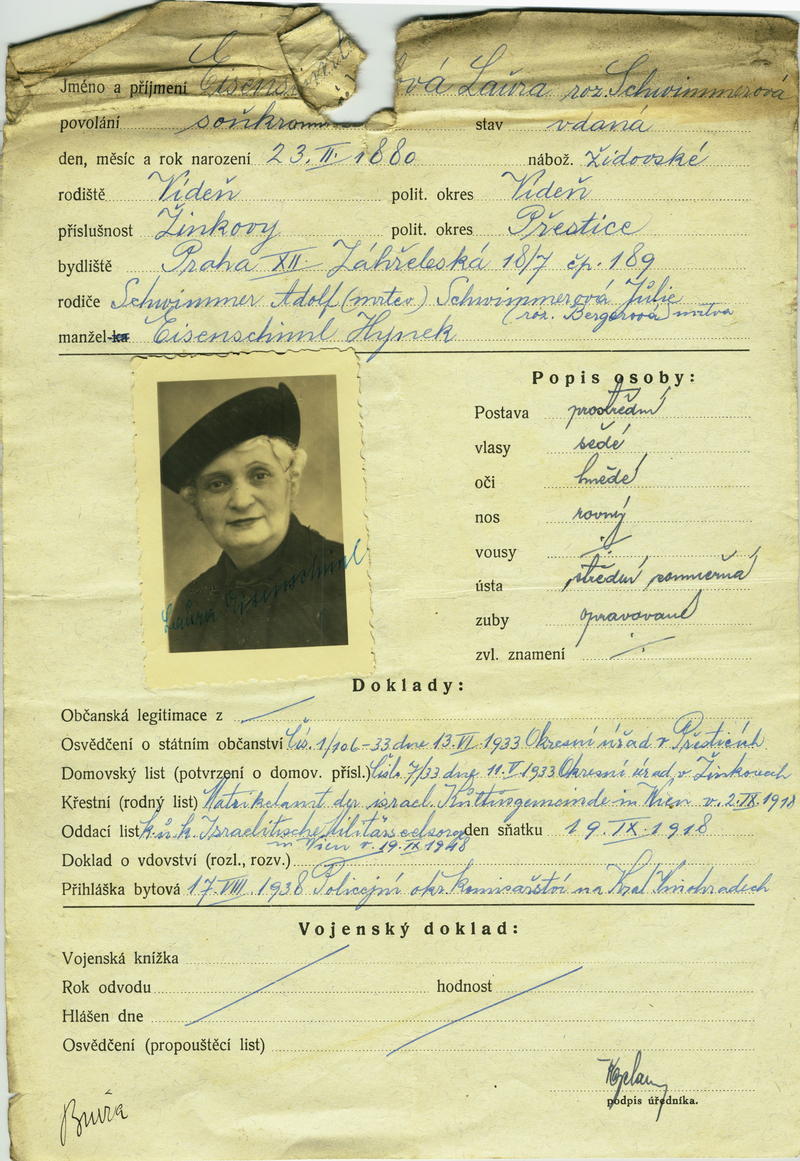 Jméno a příjmení Eisensch ová Laura roz. Schwimmerová
povolání soukrom stav vdaná
den, měsíc a rok narození 23. II. 1880 nábož. židovské
rodiště Vídeň polit. okres Vídeň
příslušnost Žinkovy polit. okres Přestice
bydliště Praha XII Záhřebská 18/7 čp. 189
rodiče Schwimmer Adolf (mrtev) Schwimmerová Julie
(roz. Bergerová) mrtva
manžel-ka Eisenschiml Hynek
Popis osoby:
Postava prostřední
vlasy šedé
oči hnědé
nos rovný
vousy
ústa střední souměrná
zuby opravované
zvl. znamení
Laura Eisenschiml
Doklady:
Občanská legitimace z
Osvědčení o státním občanství Čís. 1/106-33 dne 13. VI. 1933 Okresní úřad v Přesticích
Domovský list (potvrzení o domov. přísl.) Čísl. 7/33 dne 11. V. 1933 Okresní úrad v Žinkovech
Křestní (rodný list) Matrikelamt der israel. Kultusgemeinde in Wien v. 2. IX. 1918
Oddací list k.u.k. Israelitische Militärseelsorge den sňatku 19. IX. 1918
in Wien v. 19. IX 1918
Doklad o vdovství (rozl., rozv.)
Přihláška bytová 17. VIII. 1938 Policejní okr. komisařství na Král. Vinohradech
Vojenský doklad:
Vojenská knížka
Rok odvodu hodnost
Hlášen dne
Osvědčení (propouštěcí list)
podpis úředníka.